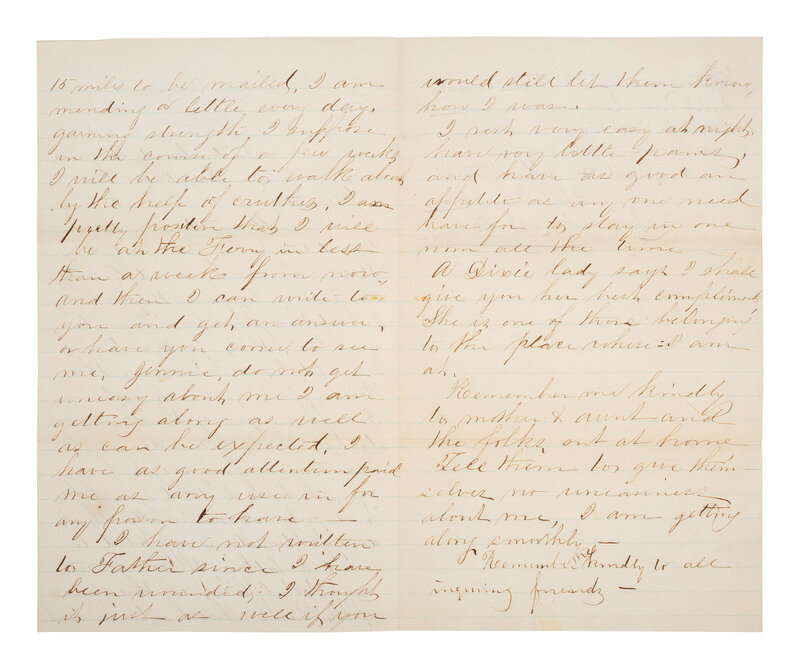 15 miles to be mailed, I am
mending a little every day,
gaining strength, I suppose
in the course of a few weeks
I will be able to walk alone
by the help of crutches, I am
pretty positive that I will
be at the Ferry in less
than a week from now,
and then I can write to
you and get an answer,
or have you come to see
me, Jennie, do not get
uneasy about me I am
getting along as well
as can be expected, I
have as good attention paid
me as any use in for
any person to have —
I have not written
to Father since I have
been wounded, I thought
it just as well if you
would still let them know,
how I was.
I rest very easy at night,
have very little pains,
and have as good an
appetite as any one need
have for to stay in one
room all the time —
A Dixie lady says I shall
give you her best compliments,
She is one of those belonging
to the place where I am
at.
Remember me kindly
to mother & aunt and
the folks out at home
Tell them to give them-
selves no uneasiness
about me, I am getting
along smoothly —
Remember me kindly to all
inquiring friends —